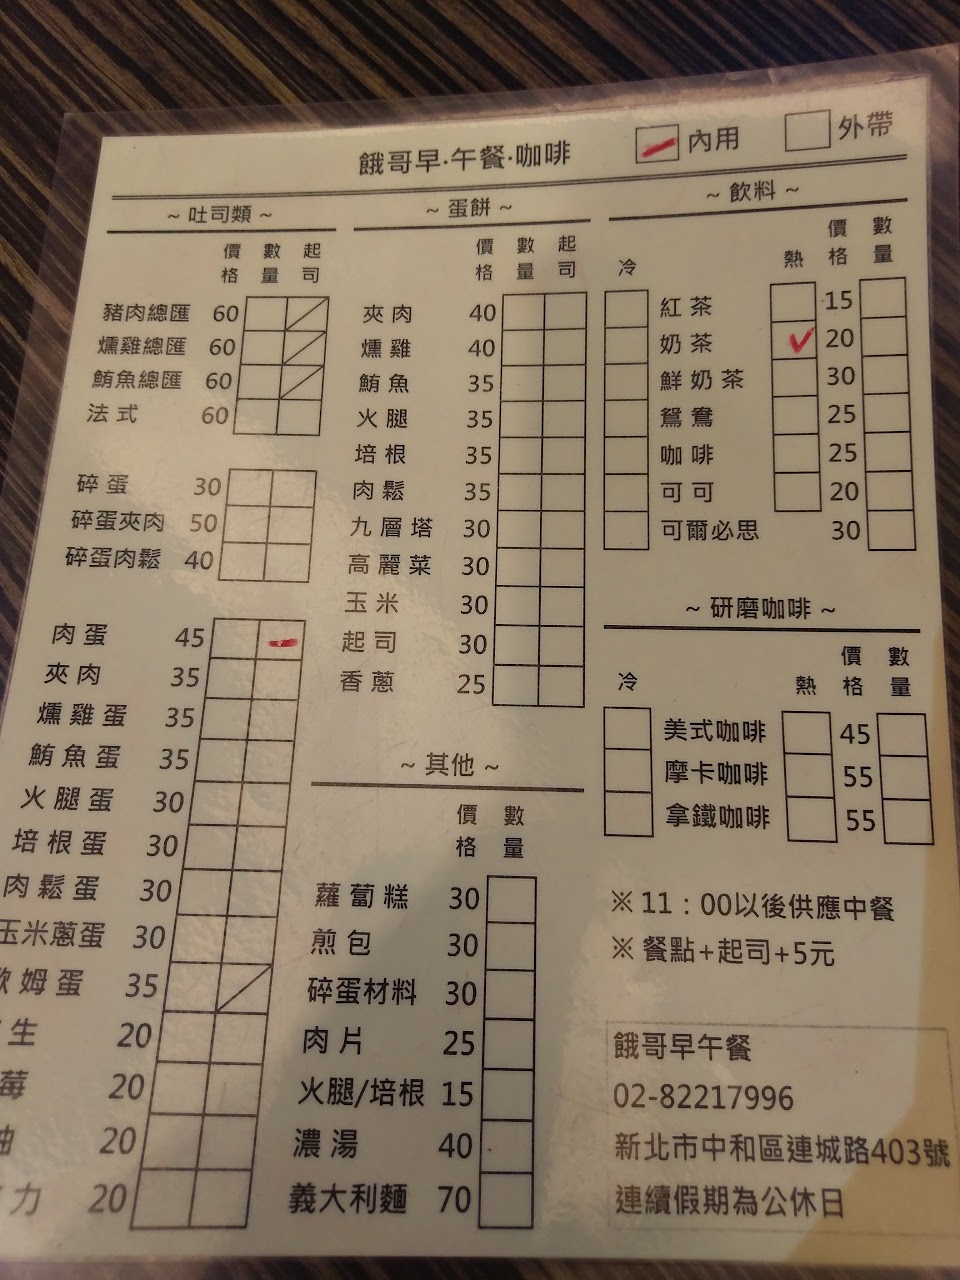 餓哥早·午餐·咖啡 內用 外帶
~ 吐司類 ~
價格 數量 起司
豬肉總匯 60
燻雞總匯 60
鮪魚總匯 60
法式 60
碎蛋 30
碎蛋夾肉 50
碎蛋肉鬆 40
肉蛋 45
夾肉 35
燻雞蛋 35
鮪魚蛋 35
火腿蛋 30
培根蛋 30
肉鬆蛋 30
玉米蔥蛋 30
姆蛋 35
生 20
莓 20
20
力 20
~ 蛋餅 ~
價格 數量 起司
夾肉 40
燻雞 40
鮪魚 35
火腿 35
培根 35
肉鬆 35
九層塔 30
高麗菜 30
玉米 30
起司 30
香蔥 25
~ 其他 ~
價格 數量
蘿蔔糕 30
煎包 30
碎蛋材料 30
肉片 25
火腿/培根 15
濃湯 40
義大利麵 70
~ 飲料 ~
冷 熱 價格 數量
紅茶 15
奶茶 20
鮮奶茶 30
鴛鴦 25
咖啡 25
可可 20
可爾必思 30
~ 研磨咖啡 ~
冷 熱 價格 數量
美式咖啡 45
摩卡咖啡 55
拿鐵咖啡 55
※ 11：00以後供應中餐
※ 餐點+起司+5元
餓哥早午餐
02-82217996
新北市中和區連城路403號
連續假期為公休日